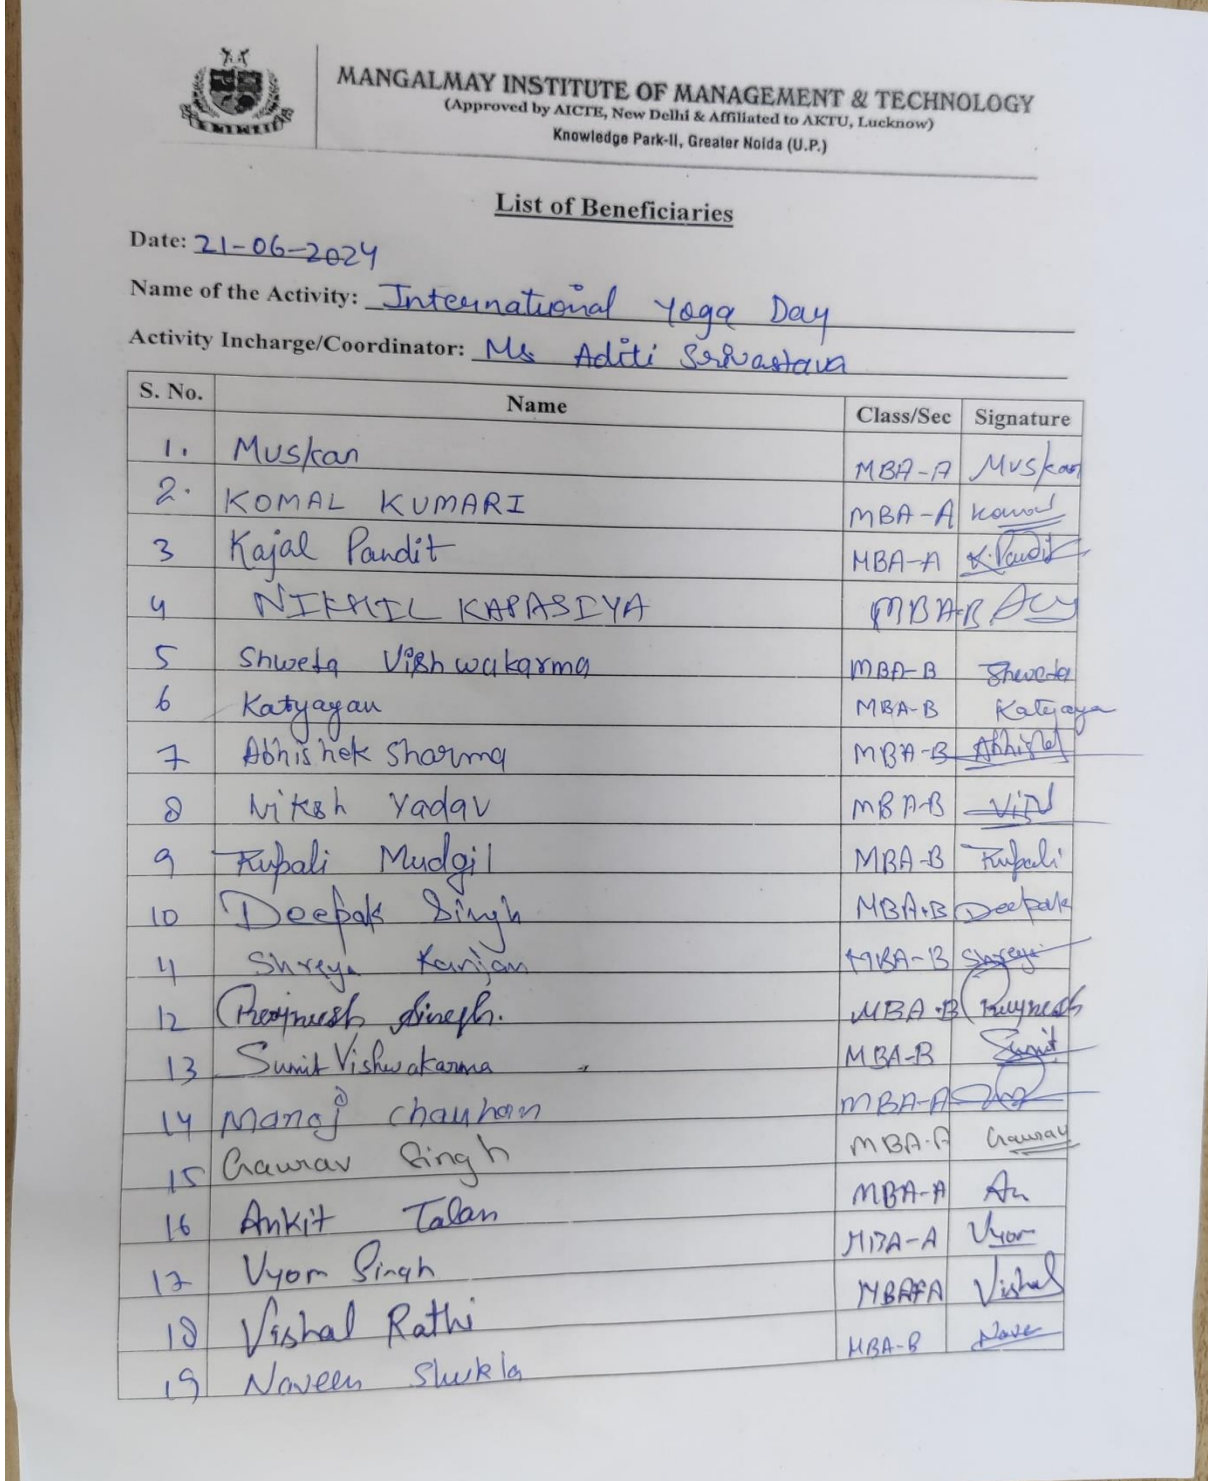 MANGALMAY INSTITUTE OF MANAGEMENT & TECHNOLOGY
(Approved by AICTE, New Delhi & Affiliated to AKTU, Lucknow)
Knowledge Park-II, Greater Noida (U.P.)
List of Beneficiaries
Date: 21-06-2024
Name of the Activity: International Yoga Day
Activity Incharge/Coordinator: Ms Aditi Srivastava
S. No. Name Class/Sec Signature
1. Muskan MBA-A Muskan
2. KOMAL KUMARI MBA-A Komal
3 Kajal Pandit MBA-A K. Pandit
4 NIKHIL KAPASIYA MBA-B
5 Shweta Vishwakarma MBA-B Shweta
6 Katyayan MBA-B Katyaya
7 Abhishek Sharma MBA-B Abhishek
8 Yadav MBA-B
9 Rupali Mudgil MBA-B Rupali
10 Deepak Singh MBA-B Deepak
11 Shreya Ranjan MBA-B Shreya
12 Singh. MBA-B
13 Sumit Vishwakarma MBA-B Sumit
14 Manoj Chauhan MBA-A
15 Gaurav Singh MBA-A Gaurav
16 Ankit Talan MBA-A An
17 Vyom Singh MBA-A Vyom
18 Vishal Rathi MBA-A Vishal
19 Naveen Shukla MBA-B Nave